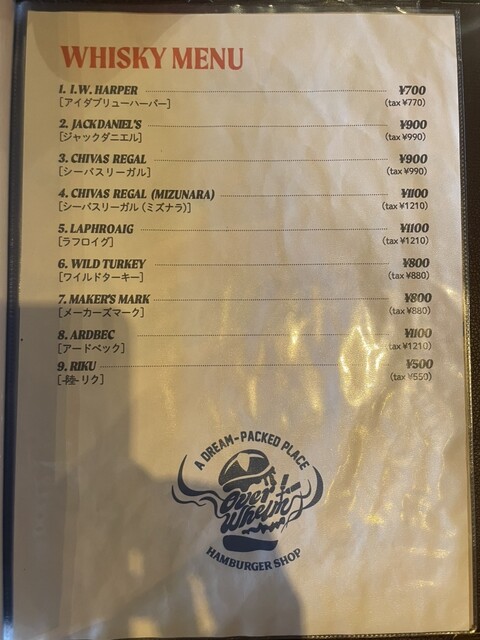 WHISKY MENU
1. I.W. HARPER ¥700
[アイダブリューハーパー] (tax ¥770)
2. JACK DANIEL'S ¥900
[ジャックダニエル] (tax ¥990)
3. CHIVAS REGAL ¥900
[シーバスリーガル] (tax ¥990)
4. CHIVAS REGAL (MIZUNARA) ¥1100
[シーバスリーガル (ミズナラ)] (tax ¥1210)
5. LAPHROAIG ¥1100
[ラフロイグ] (tax ¥1210)
6. WILD TURKEY ¥800
[ワイルドターキー] (tax ¥880)
7. MAKER'S MARK ¥800
[メーカーズマーク] (tax ¥880)
8. ARDBEC ¥1100
[アードベック] (tax ¥1210)
9. RIKU ¥500
[-陸- リク] (tax ¥550)
A DREAM-PACKED PLACE
Over!
Whelm
HAMBURGER SHOP